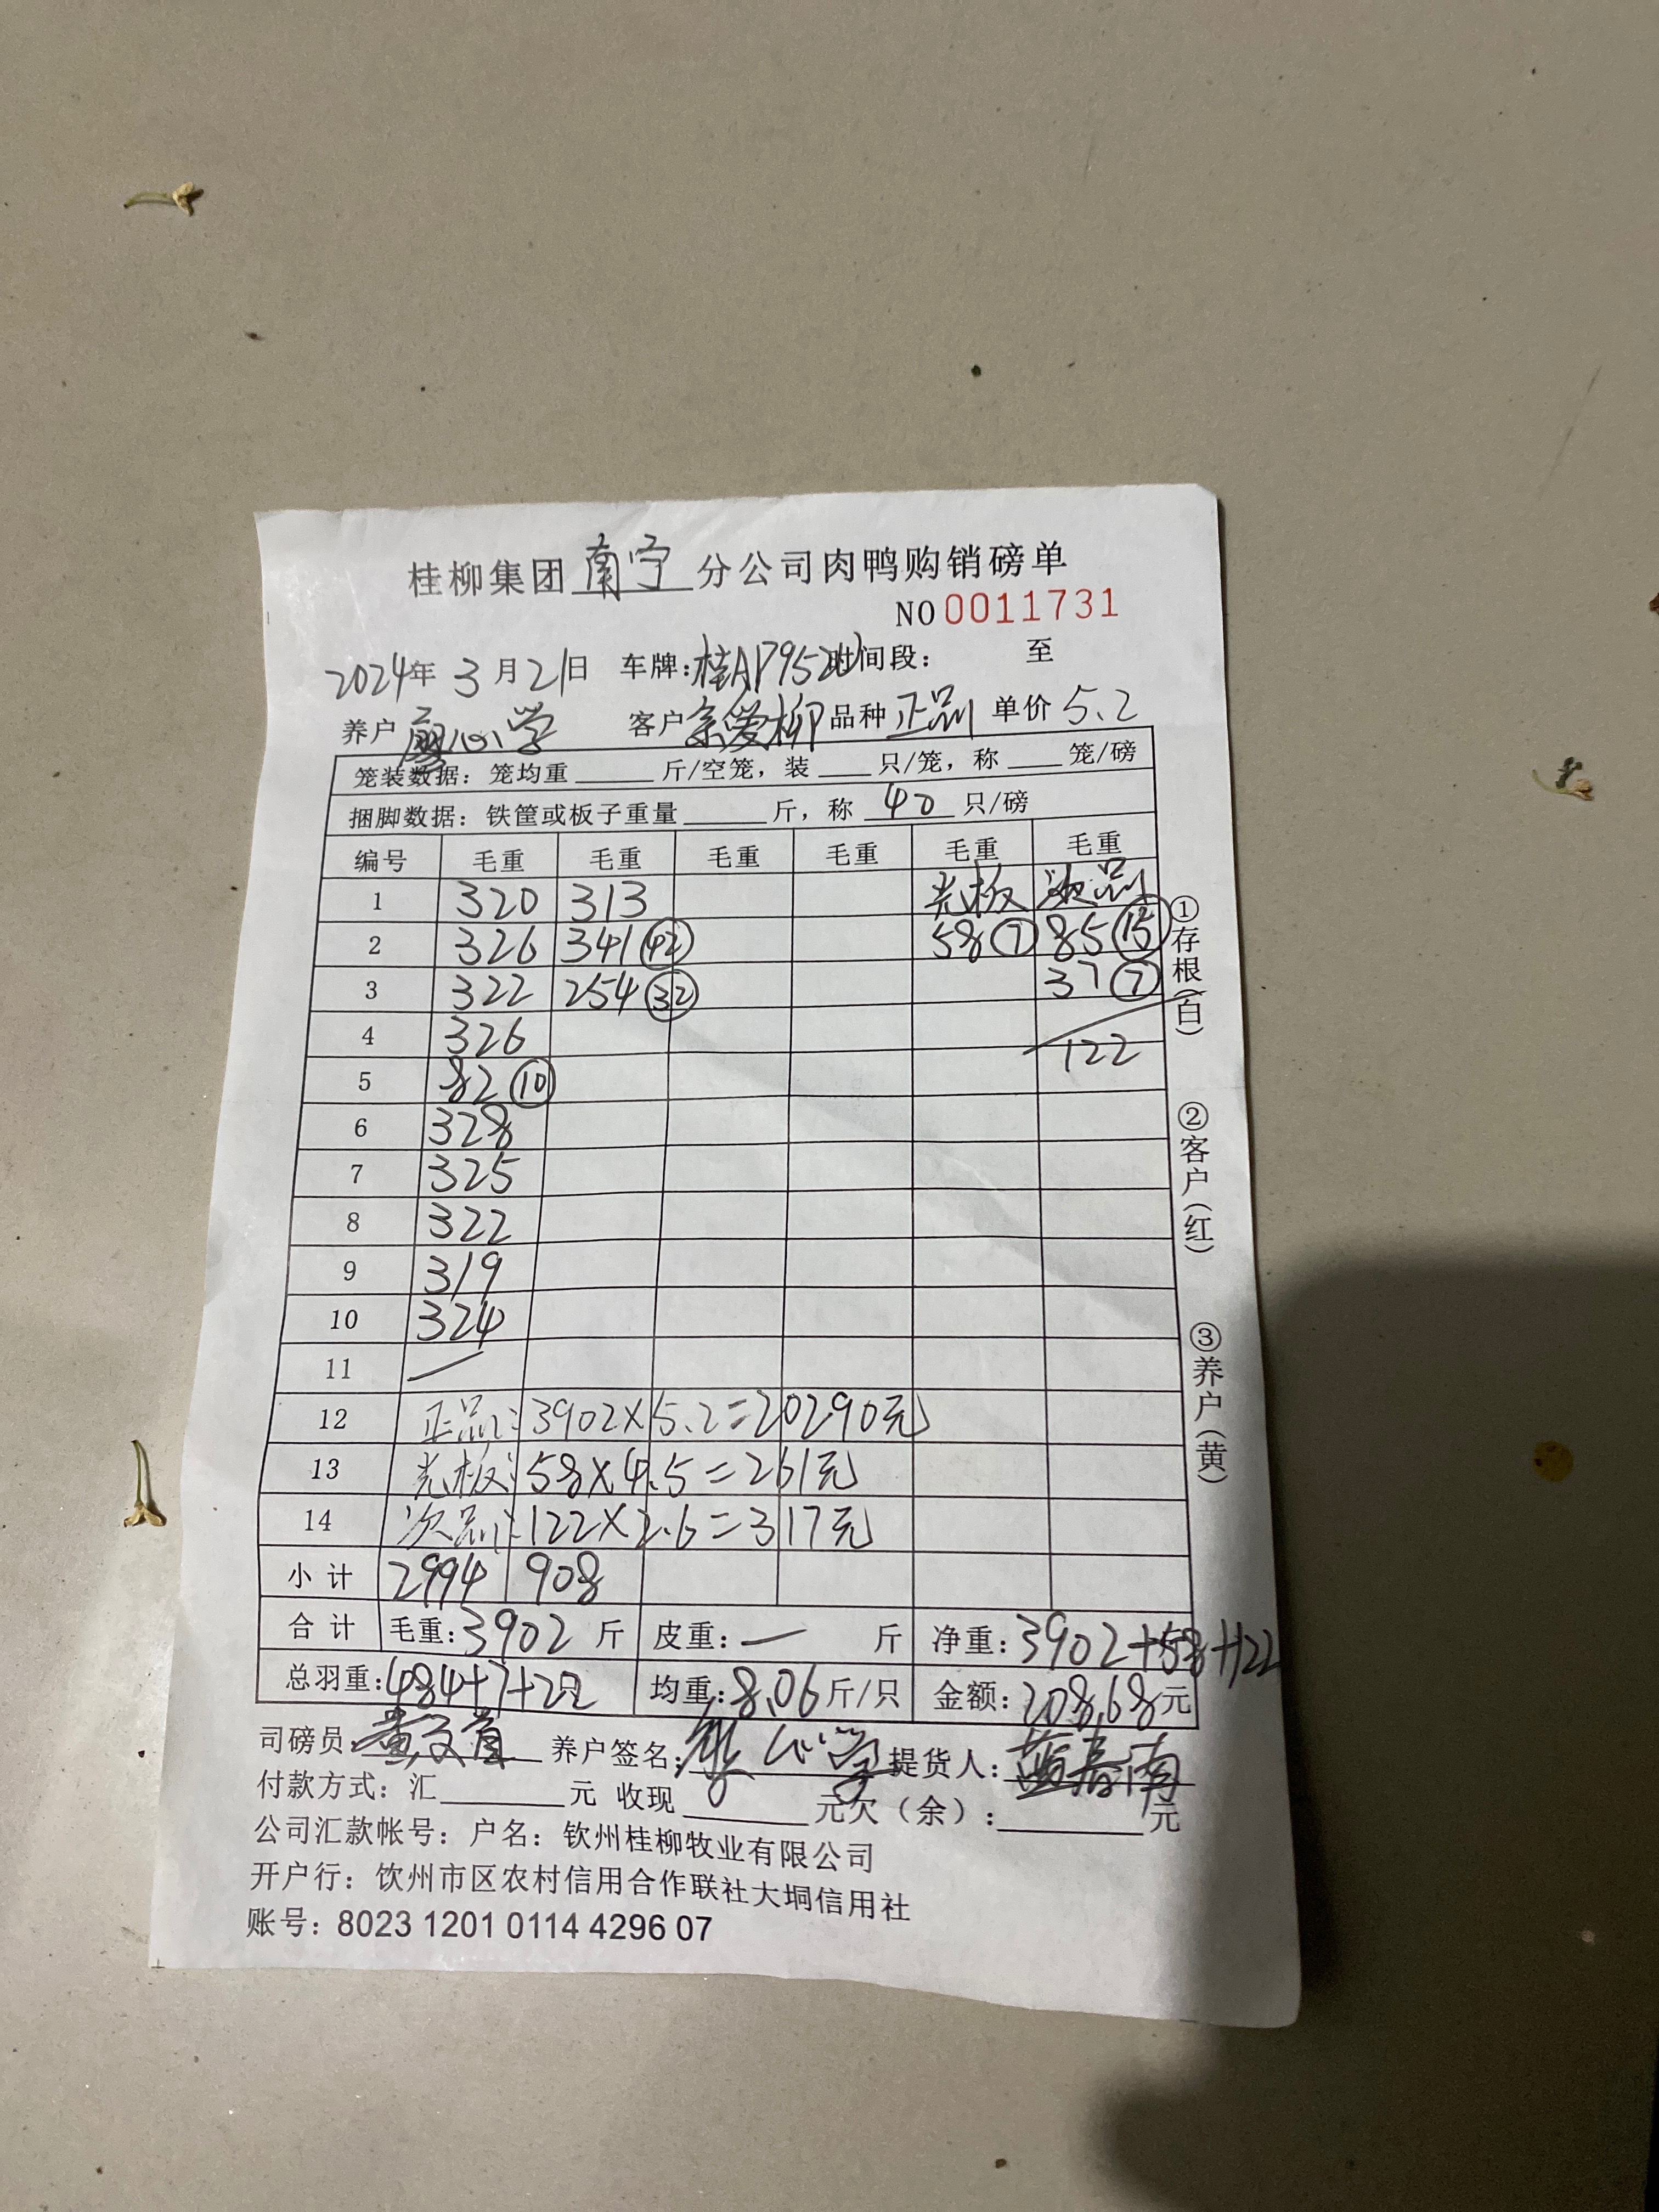 桂柳集团南宁分公司肉鸭购销磅单
NO 0011731
2024年 3月21日 车牌: 时间段: 至
养户 廖心学 客户 品种 正品 单价 5.2
笼装数据: 笼均重____斤/空笼, 装____只/笼, 称____笼/磅
捆脚数据: 铁筐或板子重量____斤, 称 40 只/磅
编号 毛重 毛重 毛重 毛重 毛重 毛重
1 320 313 光板 次品
2 326 341 (42) 58 (7) 85 (15)
3 322 254 (32) 37 (7)
4 326 122
5 82 (10)
6 328
7 325
8 322
9 319
10 324
11 —
12 正品: 3902×5.2=20290元
13 光板: 58×4.5=261元
14 次品: 122×2.6=317元
小计 2994 908
合计 毛重: 3902 斤 皮重: — 斤 净重: 3902+58+122
总羽重: 484+7+22只 均重: 8.06斤/只 金额: 20868元
司磅员: 养户签名: 心学 提货人: 蓝春南
付款方式: 汇____元 收现____元欠(余):____元
公司汇款帐号: 户名: 钦州桂柳牧业有限公司
开户行: 钦州市区农村信用合作联社大垌信用社
账号: 8023 1201 0114 4296 07
①存根(白)
②客户(红)
③养户(黄)